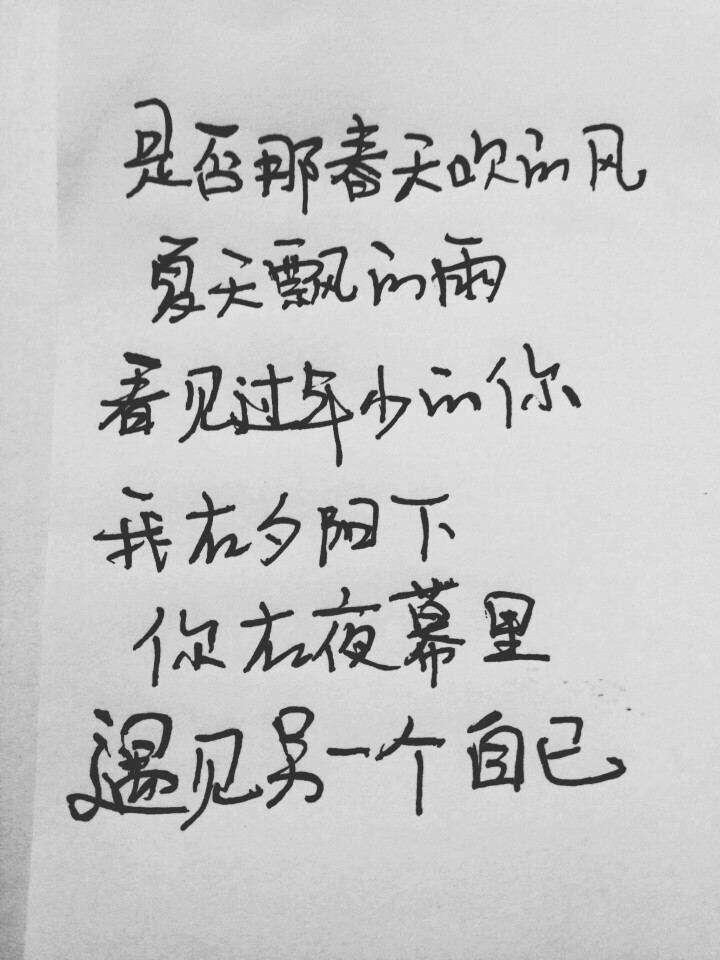 是否那春天吹的风
夏天飘的雨
看见过年少的你
我在夕阳下
你在夜幕里
遇见另一个自己